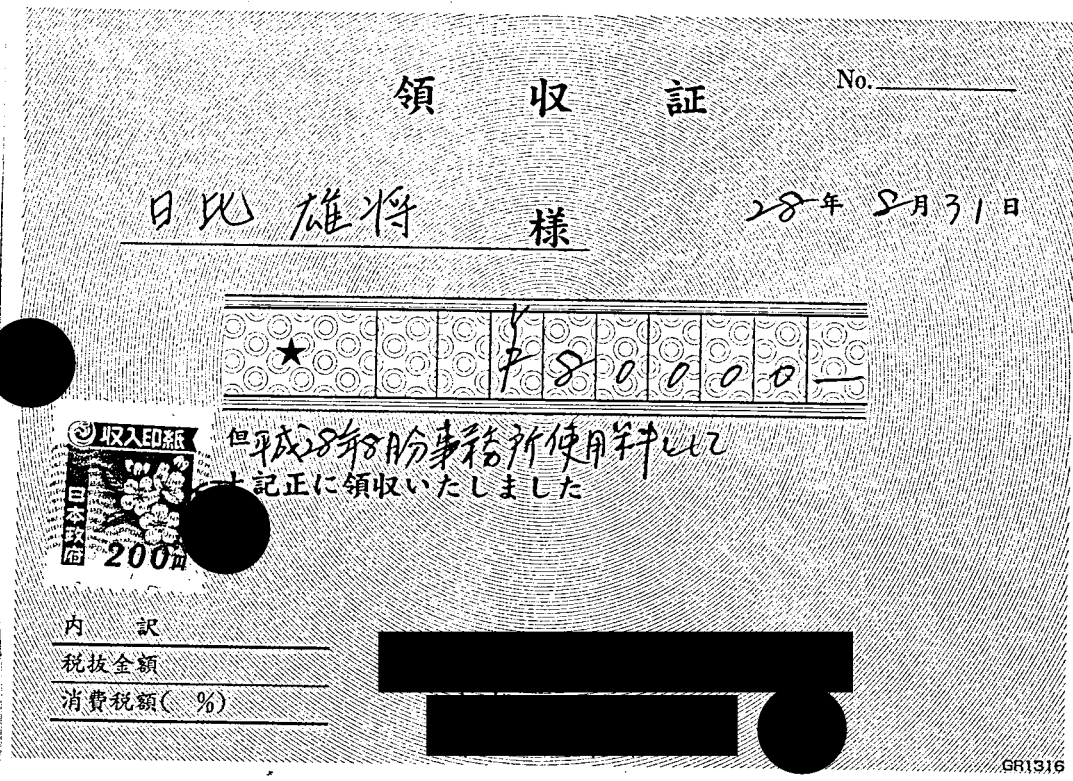 領収証
No.
日比 雄将 様
28年 8月31日
★ ¥780000―
収入印紙
日本政府
200円
但 平成28年8月分事務所使用料として
上記正に領収いたしました
内 訳
税抜金額
消費税額( %)
GR1316